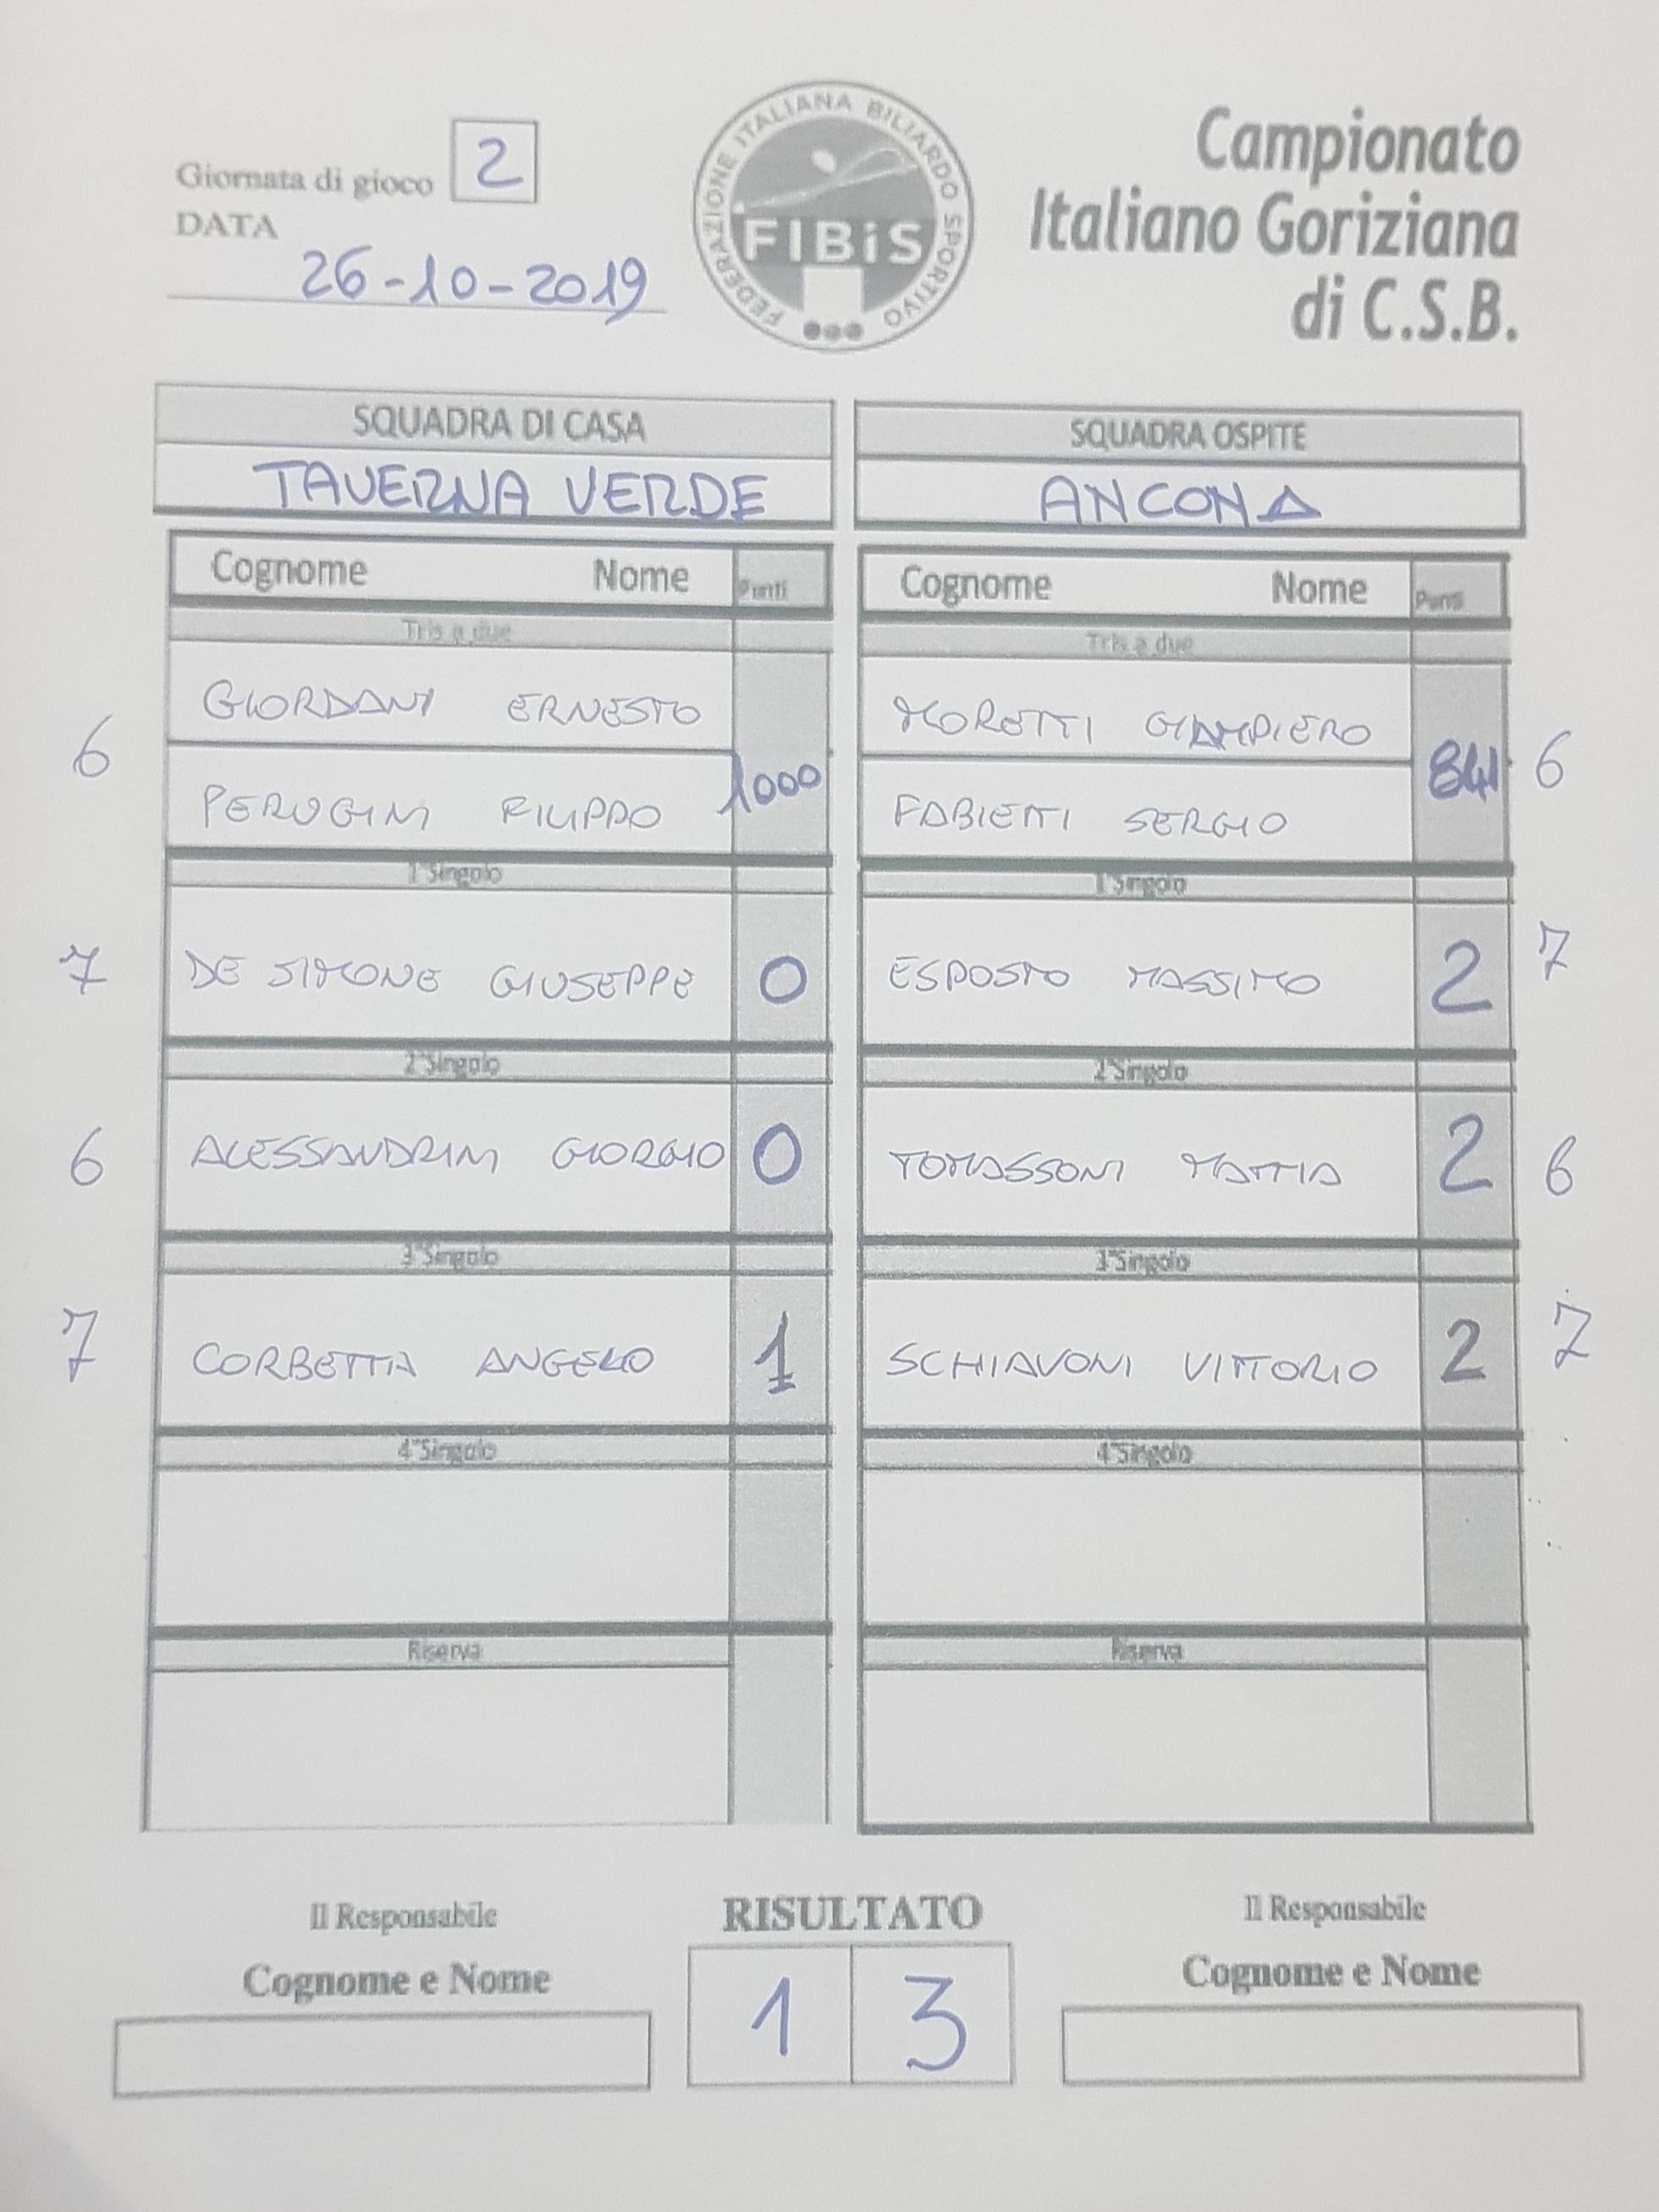 Giornata di gioco 2
DATA
26-10-2019
FEDERAZIONE ITALIANA BILIARDO SPORTIVO
FIBiS
Campionato
Italiano Goriziana
di C.S.B.
SQUADRA DI CASA
TAVERNA VERDE
SQUADRA OSPITE
ANCONA
Cognome Nome Punti
Cognome Nome Punti
Tris a due
Tris a due
6 GIORDANI ERNESTO
PERUGINI FILIPPO 1000
MORETTI GIAMPIERO
FABIETTI SERGIO 841 6
1°Singolo
1°Singolo
7 DE SIMONE GIUSEPPE 0
ESPOSTO MASSIMO 2 7
2°Singolo
2°Singolo
6 ALESSANDRINI GIORGIO 0
TOMASSONI MATTIA 2 6
3°Singolo
3°Singolo
7 CORBETTA ANGELO 1
SCHIAVONI VITTORIO 2 7
4°Singolo
4°Singolo
Riserva
Riserva
Il Responsabile
Cognome e Nome
RISULTATO
1 3
Il Responsabile
Cognome e Nome